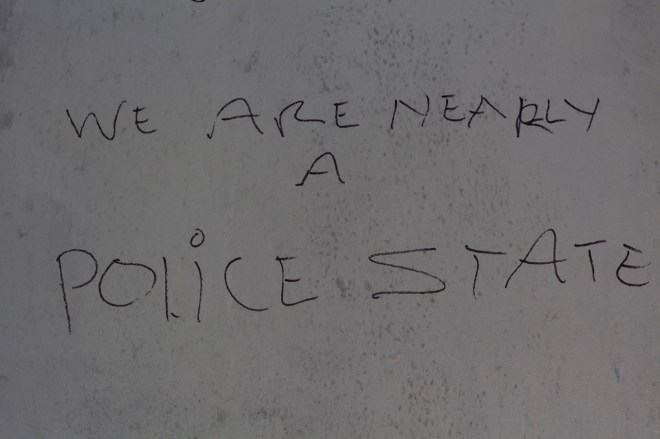 WE ARE NEARLY
A
POLiCE STATE